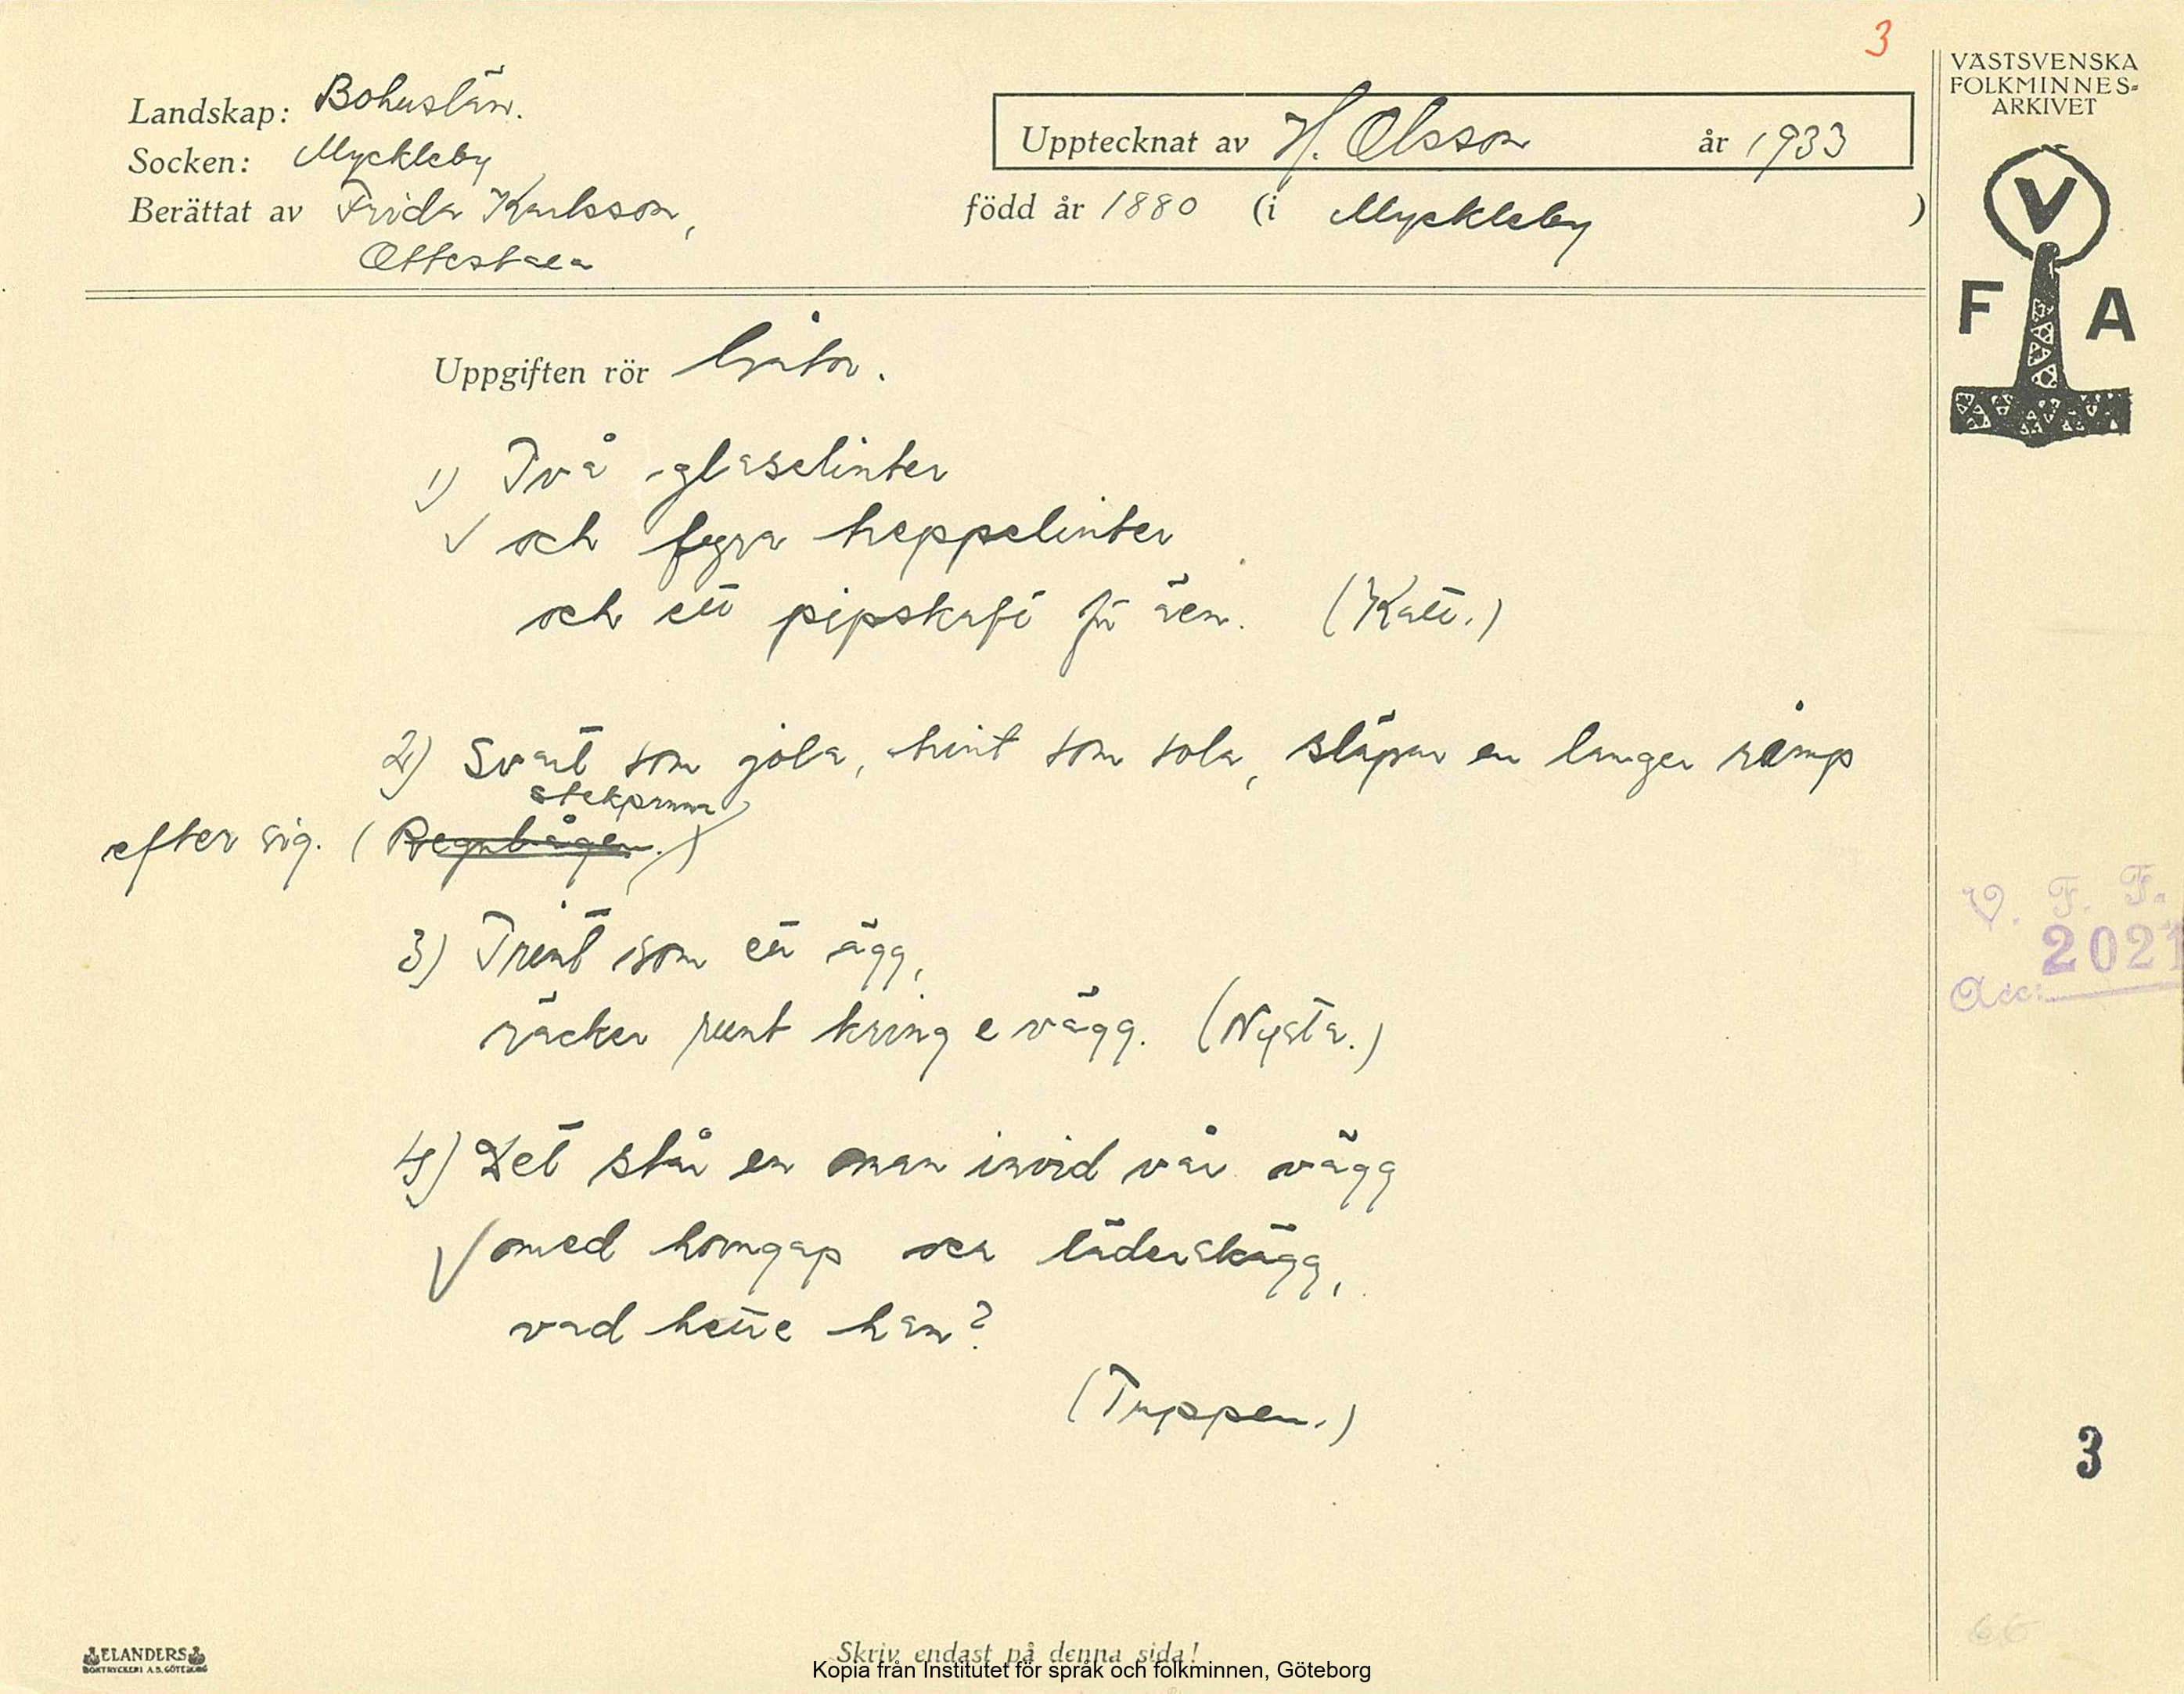 3
VÄSTSVENSKA
FOLKMINNES-
ARKIVET
V
F A
Landskap: Bohuslän.
Socken: Myckleby
Berättat av Frida Karlsson,
Ottestala
Upptecknat av H. Olsson år 1933
född år 1880 (i Myckleby )
Uppgiften rör Gåtor.
1) Två glaselinter
och fyra heppelinter
och ett pipskaft på äen. (Katt.)
2) Svart som jola, trint som sola, släpar en langer romp
stekpanna
efter sig. (Regnbågen.)
3) Trint som ett ägg,
räcker runt kring e vägg. (Nysta.)
4) Det står en man invid vår vägg
med horngap och läderskägg,
vad hette han?
(Tuppen.)
V. F. F.
2021
Acc:
3
66
ELANDERS
BOKTRYCKERI A.B. GÖTEBORG
Skriv endast på denna sida!
Kopia från Institutet för språk och folkminnen, Göteborg